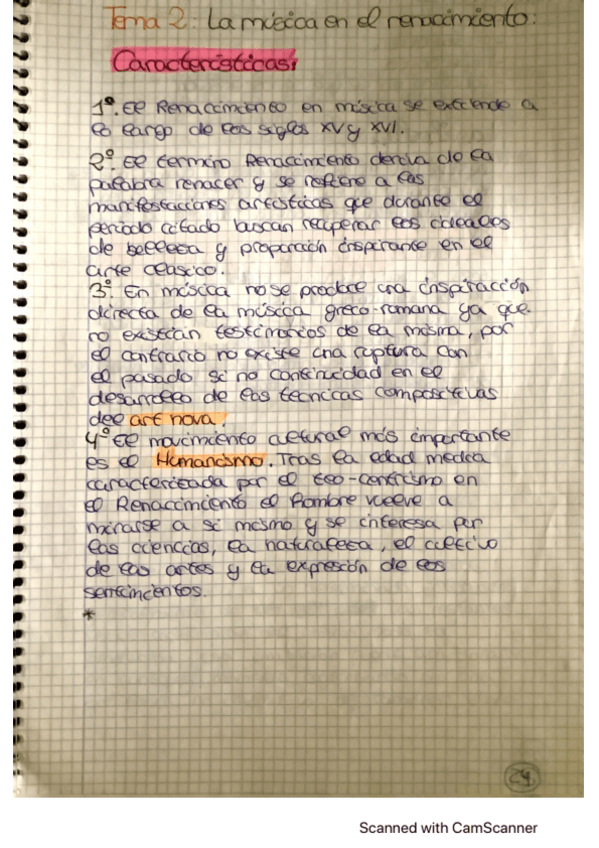 Tema 2: La música en el renacimiento:
Características:
1º. El Renacimiento en música se extiende a
lo largo de los siglos XV y XVI.
2º. El termino Renacimiento deriva de la
palabra renacer y se refiere a las
manifestaciones artísticas que durante el
periodo citado buscan recuperar los ideales
de belleza y proporción inspirante en el
arte clasico.
3º. En música no se produce una inspiración
directa de la música greco-romana ya que
no existian testimonios de la misma, por
el contrario no existe una ruptura con
el pasado si no continuidad en el
desarrollo de las técnicas compositivas
del art nova.
4º El movimiento cultural más importante
es el Humanismo. Tras la edad media
caracterizada por el teo-centrismo en
el Renacimiento el hombre vuelve a
mirarse a si mismo y se interesa por
las ciencias, la naturaleza, el cultivo
de las artes y la expresión de los
sentimientos.
*
24
Scanned with CamScanner